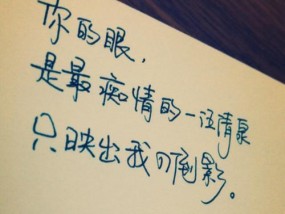 你的眼，
是最痴情的一汪清泉
只映出我的倒影。